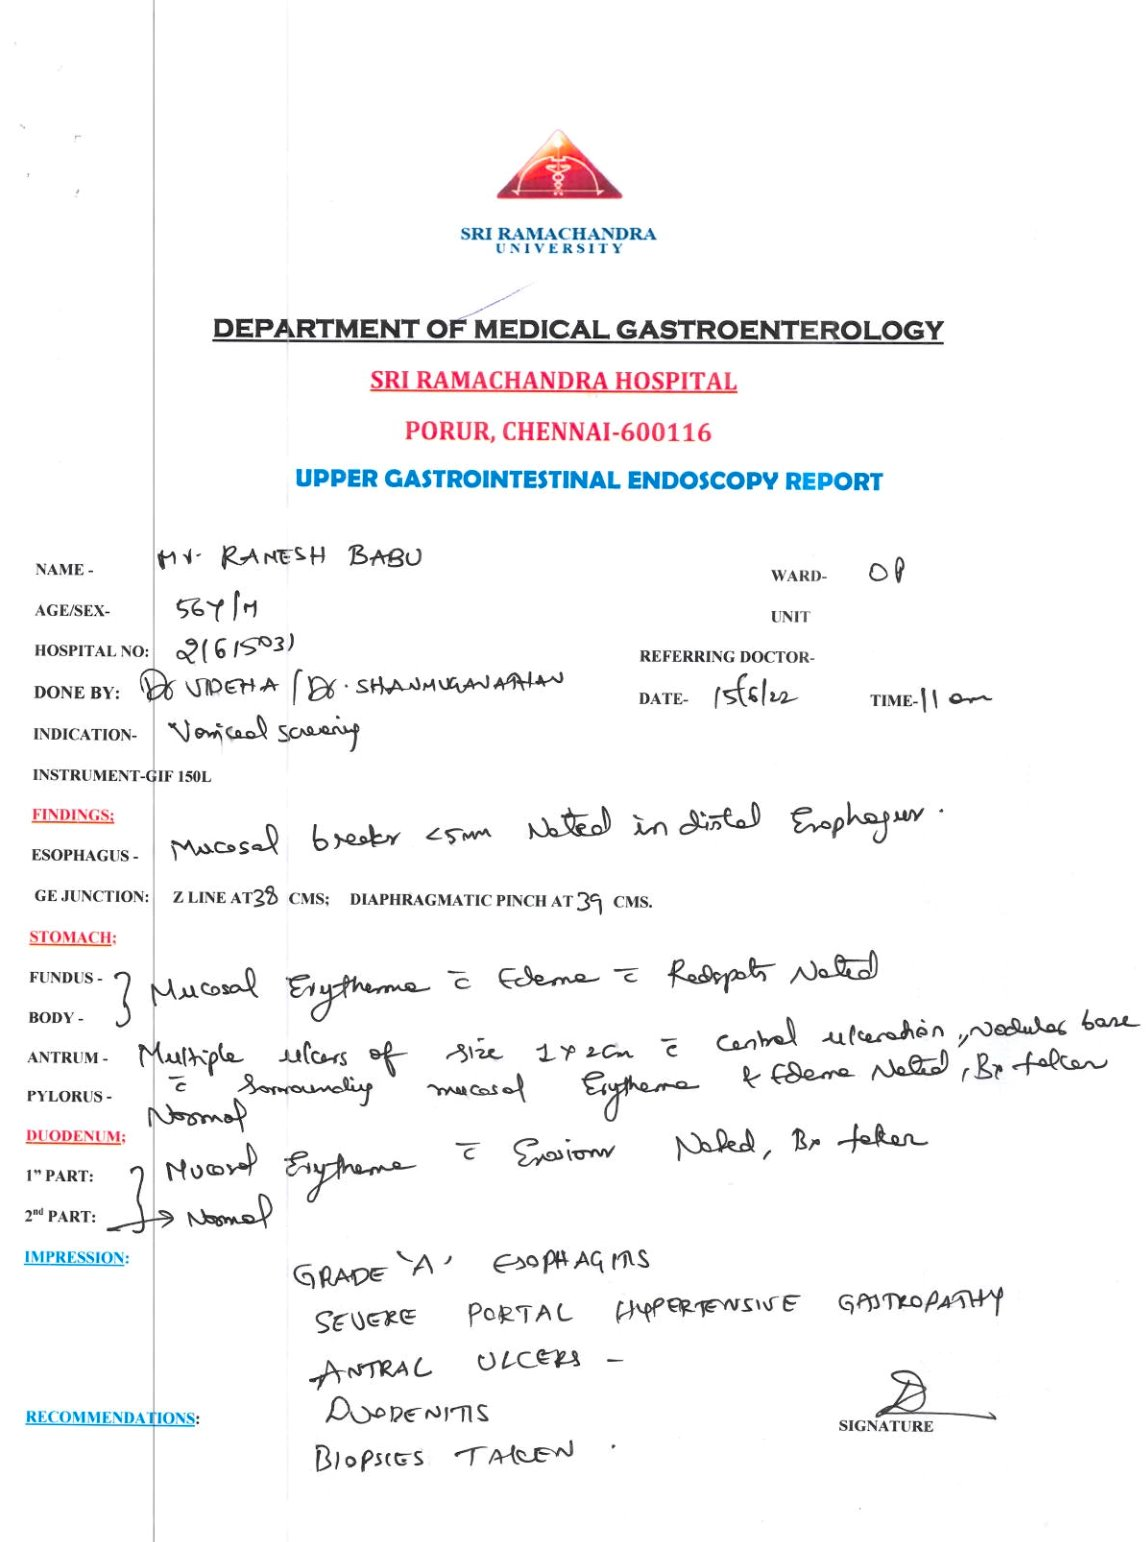 SRI RAMACHANDRA
UNIVERSITY
DEPARTMENT OF MEDICAL GASTROENTEROLOGY
SRI RAMACHANDRA HOSPITAL
PORUR, CHENNAI-600116
UPPER GASTROINTESTINAL ENDOSCOPY REPORT
NAME - Mr. RAMESH BABU WARD- OP
AGE/SEX- 56Y/M UNIT
HOSPITAL NO:
REFERRING DOCTOR-
DONE BY: Dr VIDEHA / Dr. DATE- 15/6/22 TIME- 11 am
INDICATION- Variceal screening
INSTRUMENT-GIF 150L
FINDINGS;
ESOPHAGUS - Mucosal breaks <5mm Noted in distal Esophagus.
GE JUNCTION: Z LINE AT 38 CMS; DIAPHRAGMATIC PINCH AT 39 CMS.
STOMACH;
FUNDUS - } Mucosal Erythema c̄ Edema c̄ Redspots Noted
BODY -
ANTRUM - Multiple ulcers of size 1 x 2cm c̄ central ulceration, nodular base
c̄ sorrounding mucosal Erythema & Edema Noted, Bx taken
PYLORUS - Normal
DUODENUM;
1" PART: } Mucosal Erythema c̄ Erosions Noted, Bx taken
2nd PART: → Normal
IMPRESSION:
GRADE 'A' ESOPHAGITIS
SEVERE PORTAL HYPERTENSIVE GASTROPATHY
ANTRAL ULCERS -
RECOMMENDATIONS: DUODENITIS
SIGNATURE
BIOPSIES TAKEN.